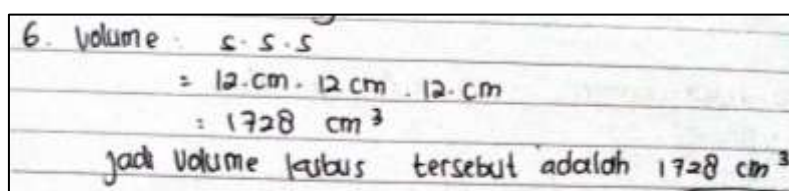 6. Volume : s. s. s
= 12. cm. 12 cm . 12. cm
= 1728 cm³
jadi volume kubus tersebut adalah 1728 cm³